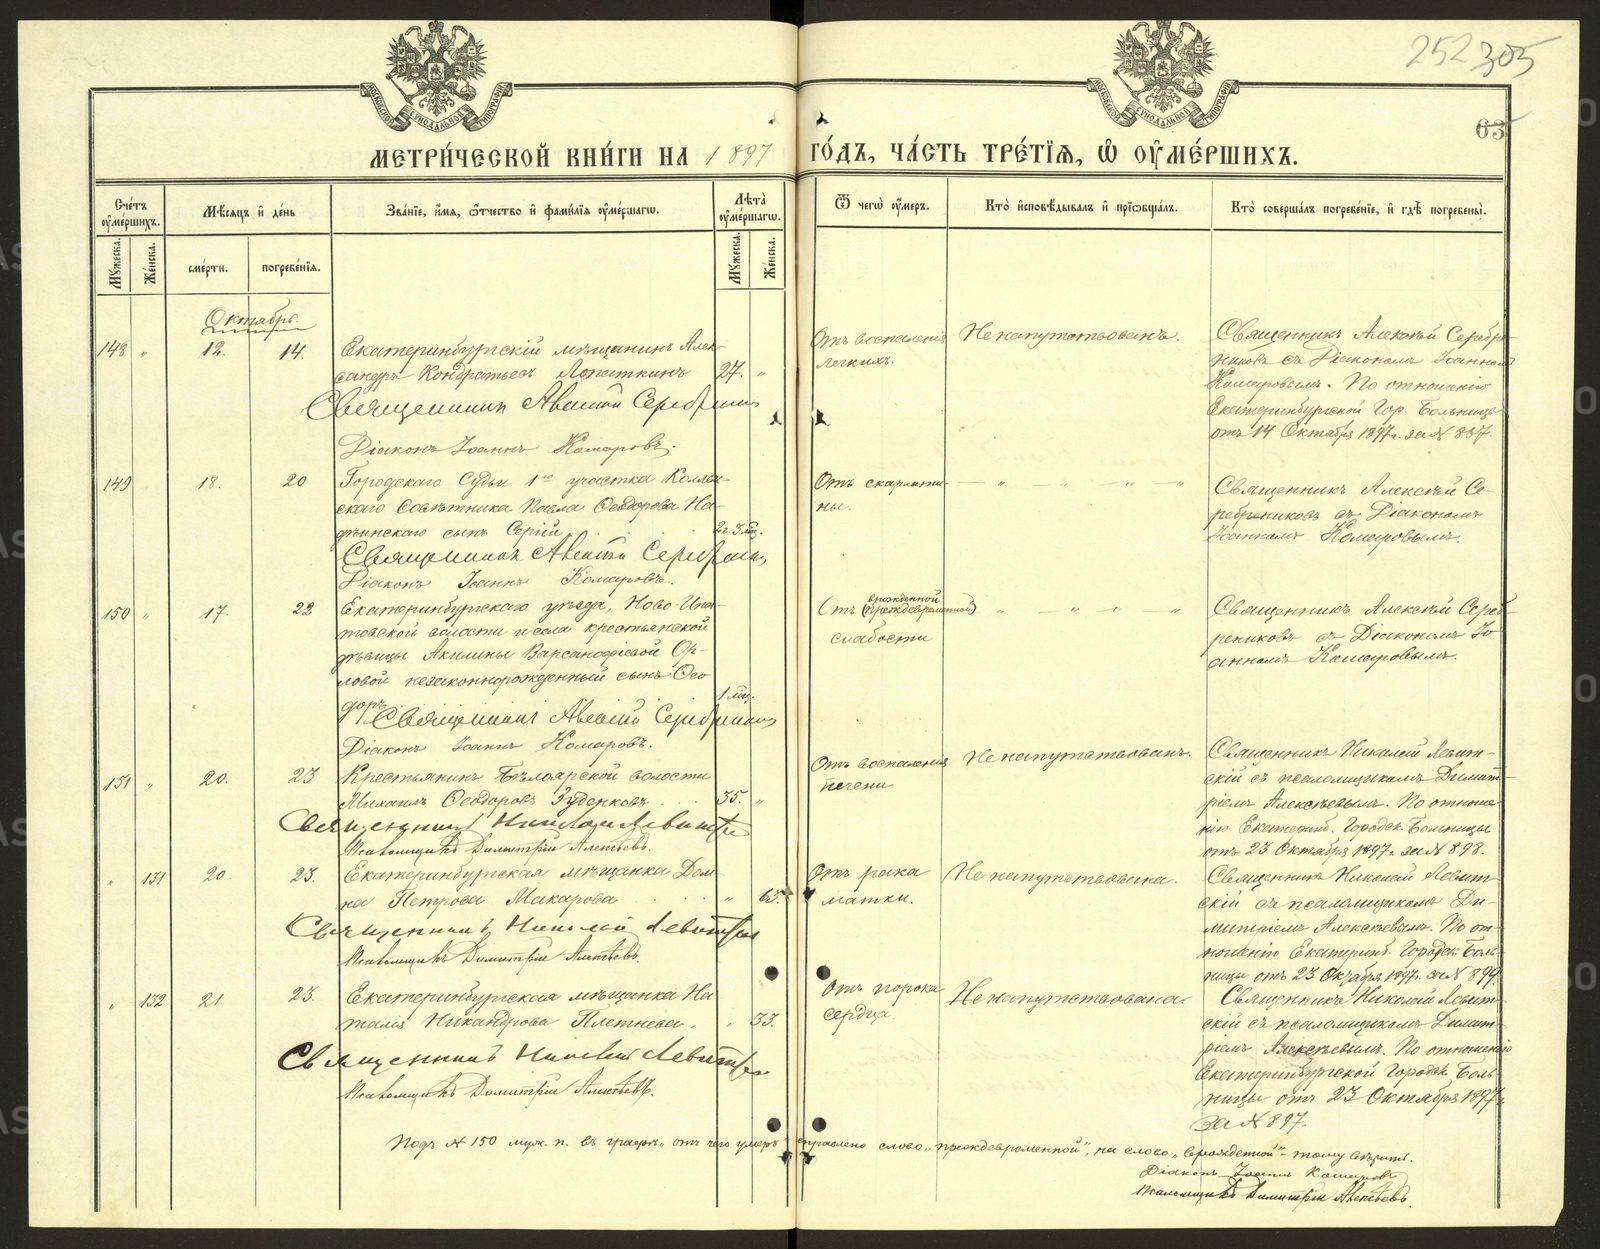 252 305
63
МОСКОВСКОЙ СѴНОДАЛЬНОЙ ТИПОГРАФІИ
МОСКОВСКОЙ СѴНОДАЛЬНОЙ ТИПОГРАФІИ
МЕТРИ́ЧЕСКОЙ КНИ́ГИ НА 1897 ГО́ДЪ, ЧА́СТЬ ТРЕ́ТІЯ, Ѽ ОУ҆МЕ́РШИХЪ.
Сче́тъ оу҆ме́ршихъ.
Мѣ́сяцъ и҆ де́нь
Зва́нїе, и҆́мя, ѻ҆́тчество и҆ фами́лїя оу҆ме́ршагѡ.
Лѣта̀ оу҆ме́ршагѡ.
Ѿ чегѡ̀ оу҆́меръ.
Кто̀ и҆сповѣ́дывалъ и҆ прїѡбща́лъ.
Кто̀ соверша́лъ погребе́нїе, и҆ гдѣ̀ погребены̀.
Мꙋ́жеска.
Же́нска.
сме́рти.
погребе́нїя.
Мꙋ́жеска.
Же́нска.
Октябрь.
148 " 12. 14. Екатеринбургскій мѣщанинъ Алек-
сандръ Кондратьевъ Лопаткинъ 27. "
Священникъ Алексій Серебрениковъ
Діаконъ Іоаннъ Комаровъ.
Отъ воспаленія
легкихъ.
Ненапутствованъ.
Священникъ Алексѣй Серебре-
никовъ съ Діакономъ Іоанномъ
Комаровымъ. По отношенію
Екатеринбургской Гор. Больницы
отъ 14 Октября 1897 г. за № 867.
149 18. 20 Городскаго Судьи 1го участка Коллеж-
скаго Совѣтника Павла Ѳеодорова На-
сынъ Сергій 2 г. 3 мѣс.
Священникъ Алексій Серебрениковъ
Діаконъ Іоаннъ Комаровъ.
Отъ скарлати-
ны.
— " — " — " "
Священникъ Алексѣй Се-
ребрениковъ съ Діакономъ
Іоанномъ Комаровымъ.
150 " 17. 22 Екатеринбургскаго уѣзда, Ново-Ипа-
товской волости и села крестьянской
дѣвицы Акилины Варсанофіевой Ор-
ловой незаконнорожденный сынъ Ѳео-
доръ 1 мѣс.
Священникъ Алексій Серебрениковъ
Діаконъ Іоаннъ Комаровъ.
врожденной
Отъ (преждевременной)
слабости
" — " — " "
Священникъ Алексѣй Сереб-
рениковъ съ Діакономъ Іо-
анномъ Комаровымъ.
151 " 20. 23 Крестьянинъ Бѣлоярской волости
Михаилъ Ѳеодоровъ Зуденковъ 35. "
Священникъ Николай Левитскій
Псаломщикъ Димитрій Алексѣевъ.
Отъ воспаленія
печени
Ненапутствованъ.
Священникъ Николай Левит-
скій съ псаломщикомъ Димит-
ріемъ Алексѣевымъ. По отноше-
нію Екатеринб. Городск. Больницы
отъ 23 Октября 1897 г. за № 898.
" 131 20. 23. Екатеринбургская мѣщанка Дом-
на Петрова Макарова " 63.
Священникъ Николай Левитскій
Псаломщикъ Димитрій Алексѣевъ.
Отъ рака
матки.
Ненапутствована.
Священникъ Николай Левит-
скій съ псаломщикомъ Ди-
митріемъ Алексѣевымъ. По от-
ношенію Екатеринб. Городск. Боль-
ницы отъ 23 Октября 1897 г. за № 899.
" 132 21. 23. Екатеринбургская мѣщанка На-
талія Никандрова Плетнева. " 33.
Священникъ Николай Левитскій
Псаломщикъ Димитрій Алексѣевъ.
Отъ порока
сердца.
Ненапутствована
Священникъ Николай Левит-
скій съ псаломщикомъ Димит-
ріемъ Алексѣевымъ. По отношенію
Екатеринбургской Городск. Боль-
ницы отъ 23 Октября 1897 г.
за № 897.
Подъ № 150 муж. п. въ графѣ "отъ чего умеръ" справлено слово "преждевременной", на слово "врожденной" – тому вѣрить.
Діаконъ Іоаннъ Комаровъ
Псаломщикъ Димитрій Алексѣевъ.